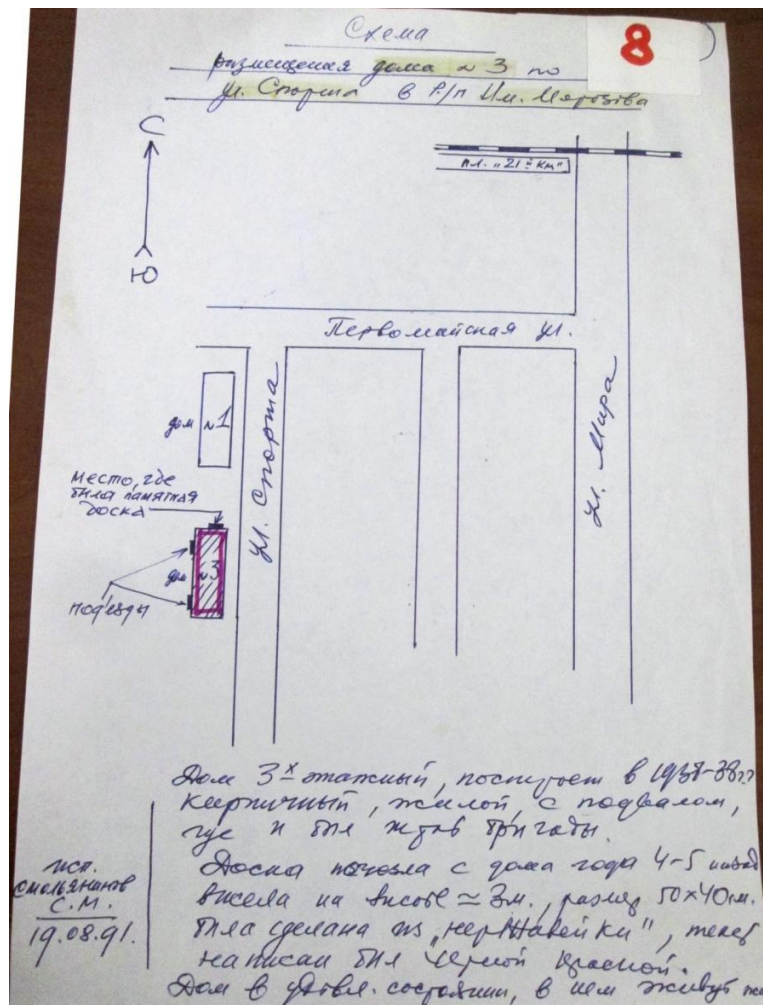 Схема
8
размещения дома №3 по
ул. Спорта в Р/п Им. Морозова
С
пл. "21й км"
Ю
Первомайская ул.
дом №1
ул. Спорта
ул. Мира
место, где
была памятная
доска
дом №3
под'езды
Дом 3х этажный, построен в
кирпичный, жилой, с подвалом,
где и был штаб бригады.
Доска исчезла с дома года 4-5 назад
висела на высоте ≈ 3м., размер 50х40см.
была сделана из "нержавейки", текст
написан был черной краской.
Дом в удовл. состоянии, в нем живут
исп.
Смольянинов
С.М.
19.08.91.